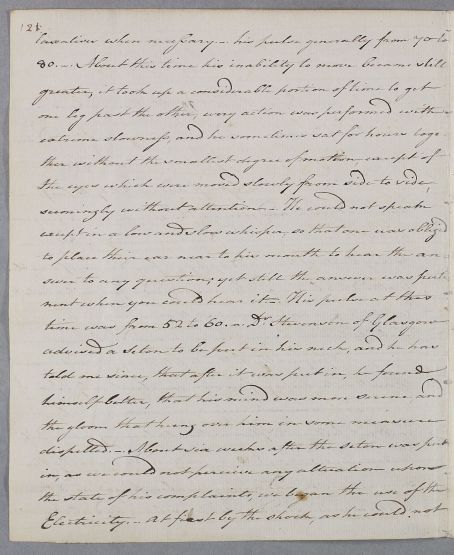 125
laxatives when necessary – his pulse generally from 70 to
80. – About this time his inability to move became still
greater, it took up a considerable portion of time to get
one leg past the other, every action was performed with
extreme slowness, and he sometimes sat for hours toge
ther without the smallest degree of motion, except of
the eyes which were moved slowly from side to side,
seemingly without attention – He could not speak
except in a low and slow whisper, so that one was obliged
to place their ear near to his mouth to hear the an-
swer to any question; yet still the answer was perti
nent when you could hear it – His pulse at this
time was from 52 to 60. – Dr Stevenson of Glasgow
advised a Seton to be put in his neck, and he has
told me since, that after it was put in, he found
himself better, that his mind was more serene and
the gloom that hung over him in some measure
dispelled. – About six weeks after the seton was put
in, as we could not perceive any alteration upon
the state of his complaints, we began the use of the
Electricity. – At first by the shock, as he could not